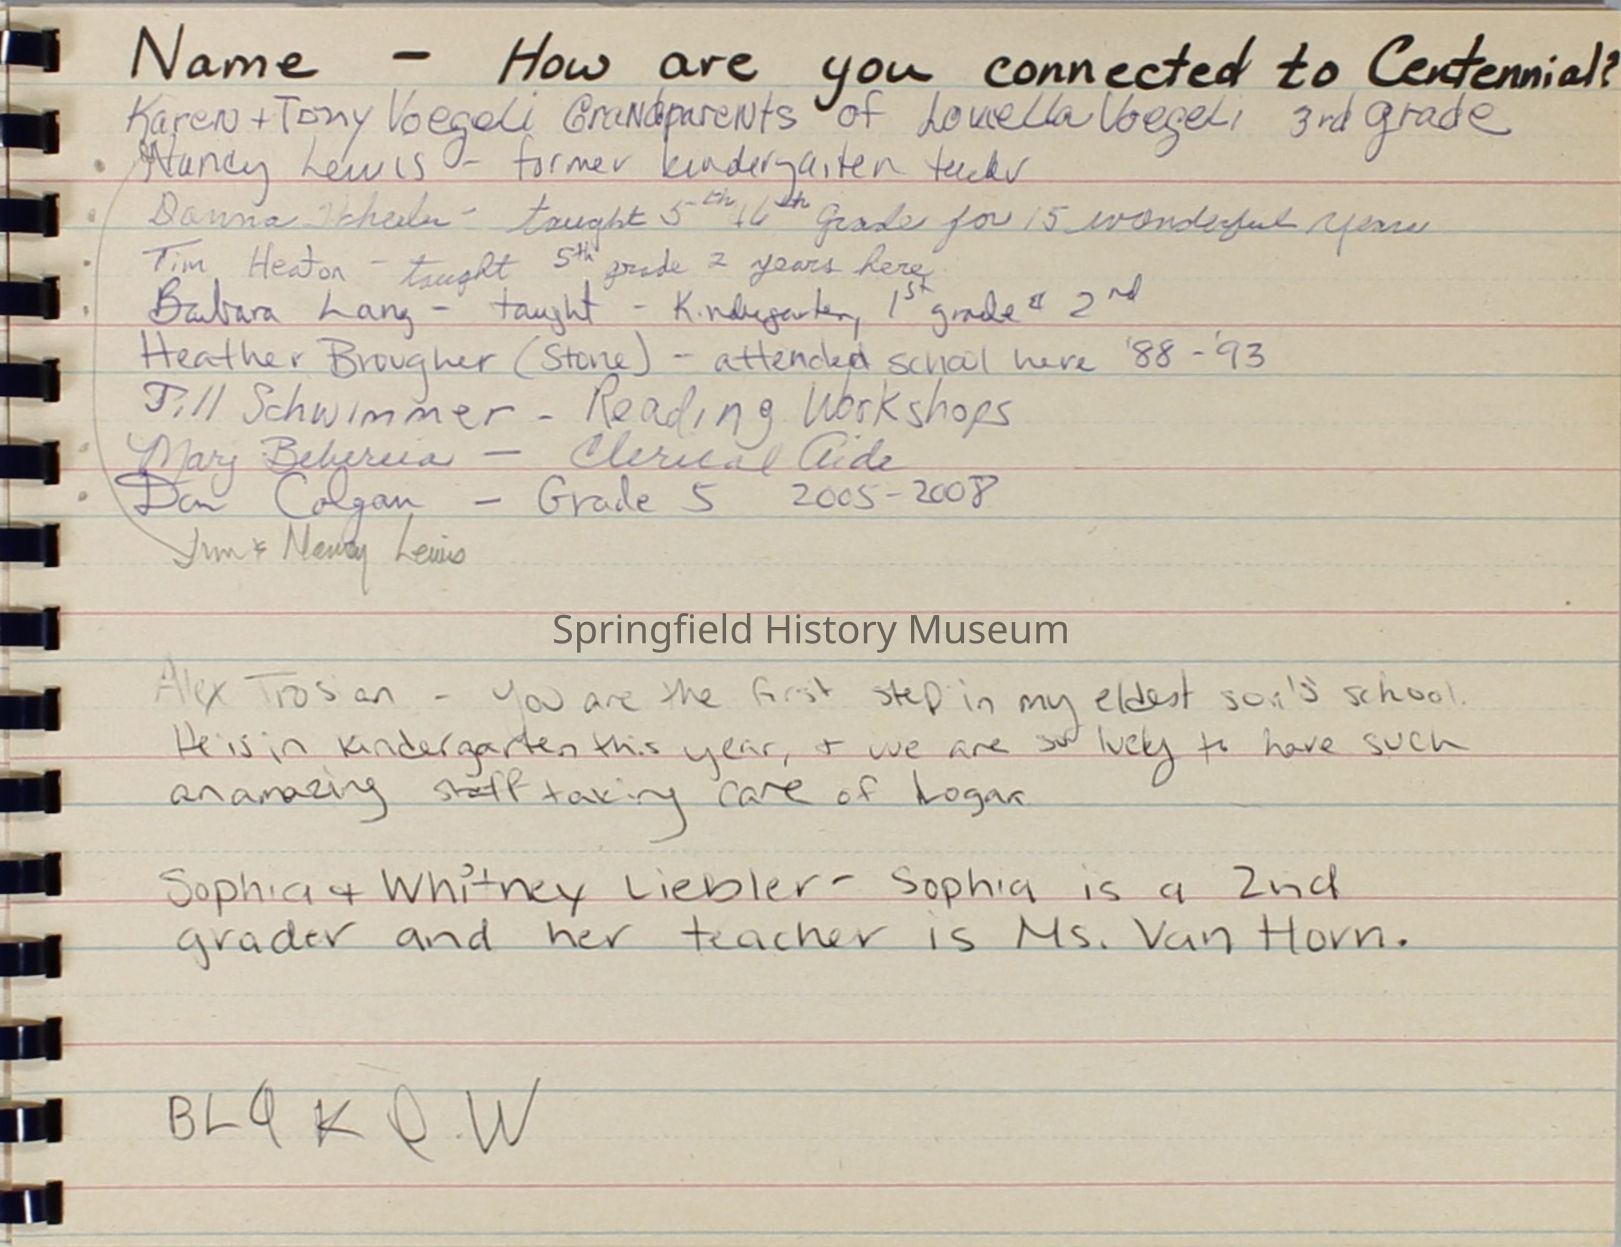 Name - How are you connected to Centennial?
Karen + Tony Voegeli Grandparents of Louella Voegeli 3rd grade
Nancy Lewis - former kindergarten teacher
Donna - taught 5th + 6th Grade for 15 wonderful years
Tim Heaton - taught 5th grade 2 years here
Barbara Lang - taught - Kindergarten, 1st grade & 2nd
Heather Brougher (Stone) - attended school here '88 - '93
Jill Schwimmer - Reading Workshops
Mary - Clerical Aide
Dan Colgan - Grade 5 2005-2008
Jim & Nancy Lewis
Springfield History Museum
Alex Trosian - you are the first step in my eldest son's school.
He is in kindergarten this year, + we are so lucky to have such
an amazing staff taking care of Logan
Sophia + Whitney Liebler - Sophia is a 2nd
grader and her teacher is Ms. Van Horn.